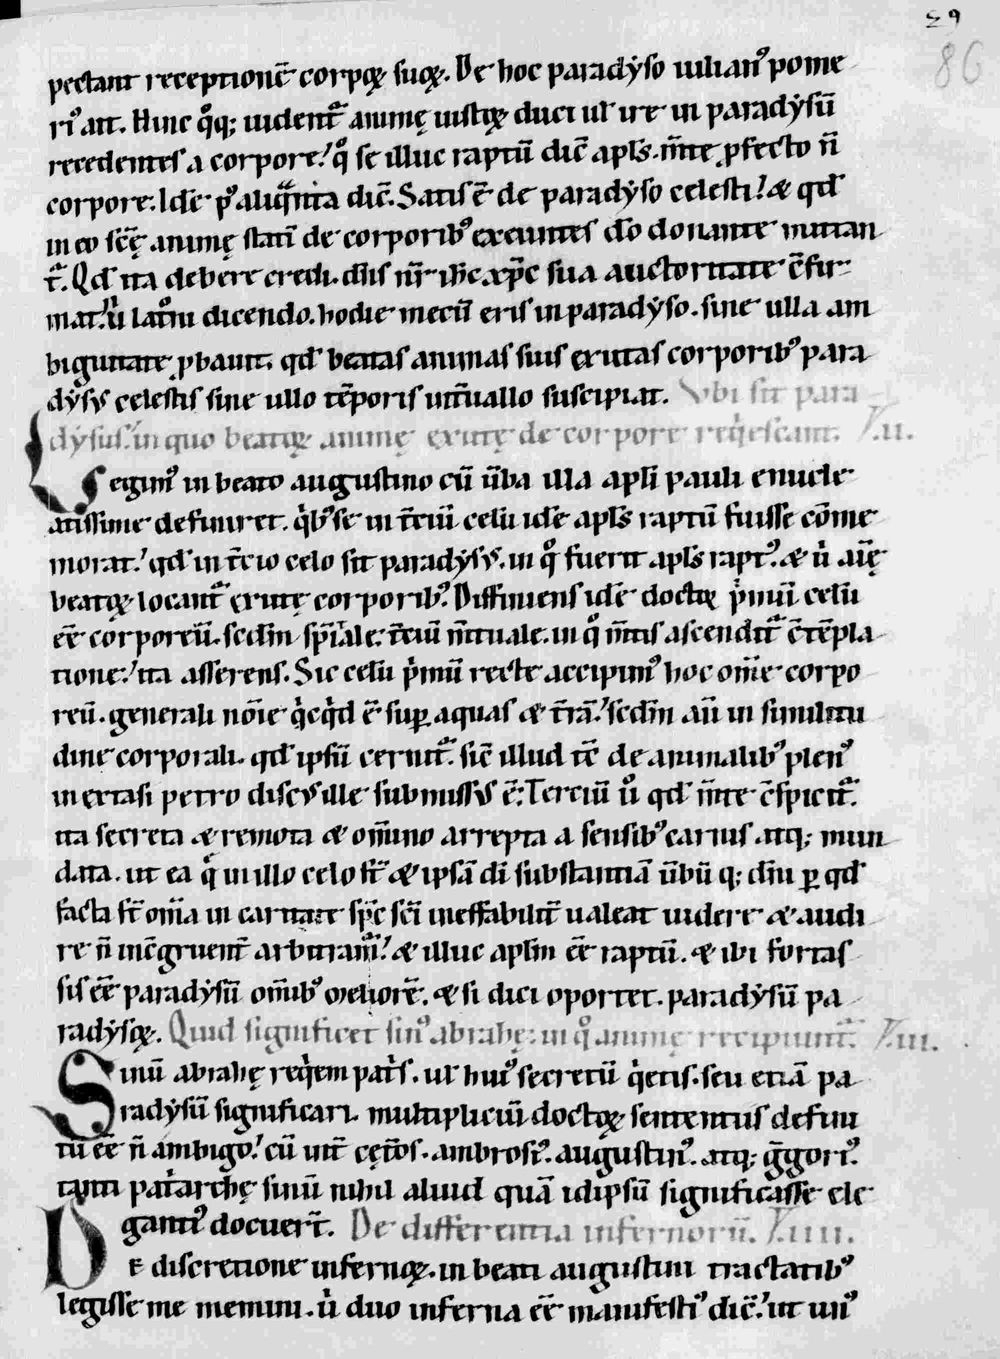 29
86
pectant receptionē corpoꝝ suoꝝ. De hoc paradẏso iulianꝰ pome
riꝰ ait. Hinc qͦq; uident᷑ animę iustoꝝ duci uł ire in paradẏsū
recedentes a corpore! qͦ se illuc raptū dic̄ apls̄. m̄te ꝓfecto n̄
corpore. Idē pꝰ aliqͣnta dic̄. Satis ē de paradẏso celesti! & qđ
in eo sc̄ę animę statī de corporibꝰ exeuntes dō donante mittan
t᷑. Qđ ita debere credi. dn̄s nr̄ ih̄c xp̄c sua auctoritate c̄fir
mat! ů latͦni dicendo. hodie mecū eris in paradẏso. sine ulla am
biguitate ꝓbauit. qđ beatas animas suis exutas corporibꝰ para
dẏsꝰ celestis sine ullo tēporis int̄uallo suscipiat. Vbi sit para
dẏsus. in quo beatoꝝ animę exutę de corpore reqͥescant. V.ii.
Legimꝰ in beato augustino cū ūba illa apłi pauli enucle
atissime definiret. qͥbꝰ se in t̄ciū celū idē apls̄ raptū fuisse cōme
morat! qđ in t̄cio celo sit paradẏsꝰ. in qͦ fuerit apls̄ raptꝰ. & ů aīę
beatoꝝ locant᷑ exutę corporibꝰ. Diffiniens idē doctoꝝ pͥmū celū
eē corporeū. scđm spirͥale. t̄ciū m̄tuale. in qͦ m̄tis ascendit᷑ c̄tēpla
tione! ita asserens. Sic celū pͥmū recte accipimꝰ hoc om̄e corpo
reū. generali nōie qͥcqͥd ē suꝑ aquas & t̄rā! scđm aū in similitu
dine corporali. qđ ipsū cernit᷑. sic̄ illud ē de animalibꝰ plenꝰ
in extasi petro discꝰ ille submissꝰ ē. Terciū ů qđ m̄te c̄spicit᷑.
ita secreta & remota & om̄ino arrepta a sensibꝰ carnis atq; mun
data. ut ea qͥ in illo celo st̄ & ipsā dī substantiā ūbū q; dm̄ ꝑ qđ
facta st̄ om̄ia in caritate sp̄c sc̄i ineffabilit̄ ualeat uidere & audi
re n̄ inc̄gruent̄ arbitram᷑! & illuc aplm̄ eē raptū. & ibi fortas
sis eē paradẏsū om̄ibꝰ meliorē. & si dici oportet. paradẏsū pa
radẏsoꝝ. Quid significet sinꝰ abrahę. in qͦ animę recipiunt᷑. V.iii.
Sinū abrahę reqͥem patͥs. uł huiꝰ secretū qͥetis. seu etiā pa
radẏsū significari. multipliciū doctoꝝ sententiis defini
tū eē n̄ ambigo! cū int̄ cęt̄os. ambrosiꝰ. augustinꝰ. atq; g̅goriꝰ.
tam patͥarchę sinū nihil aliud quā idipsū significasse ele
gantiꝰ docuer̄t. De differentia infernorū. V.iiii.
De discretione infernoꝝ. in beati augustini tractatibꝰ
legisse me memini. ů duo inferna eē manifestiꝰ dic̄! ut uniꝰ